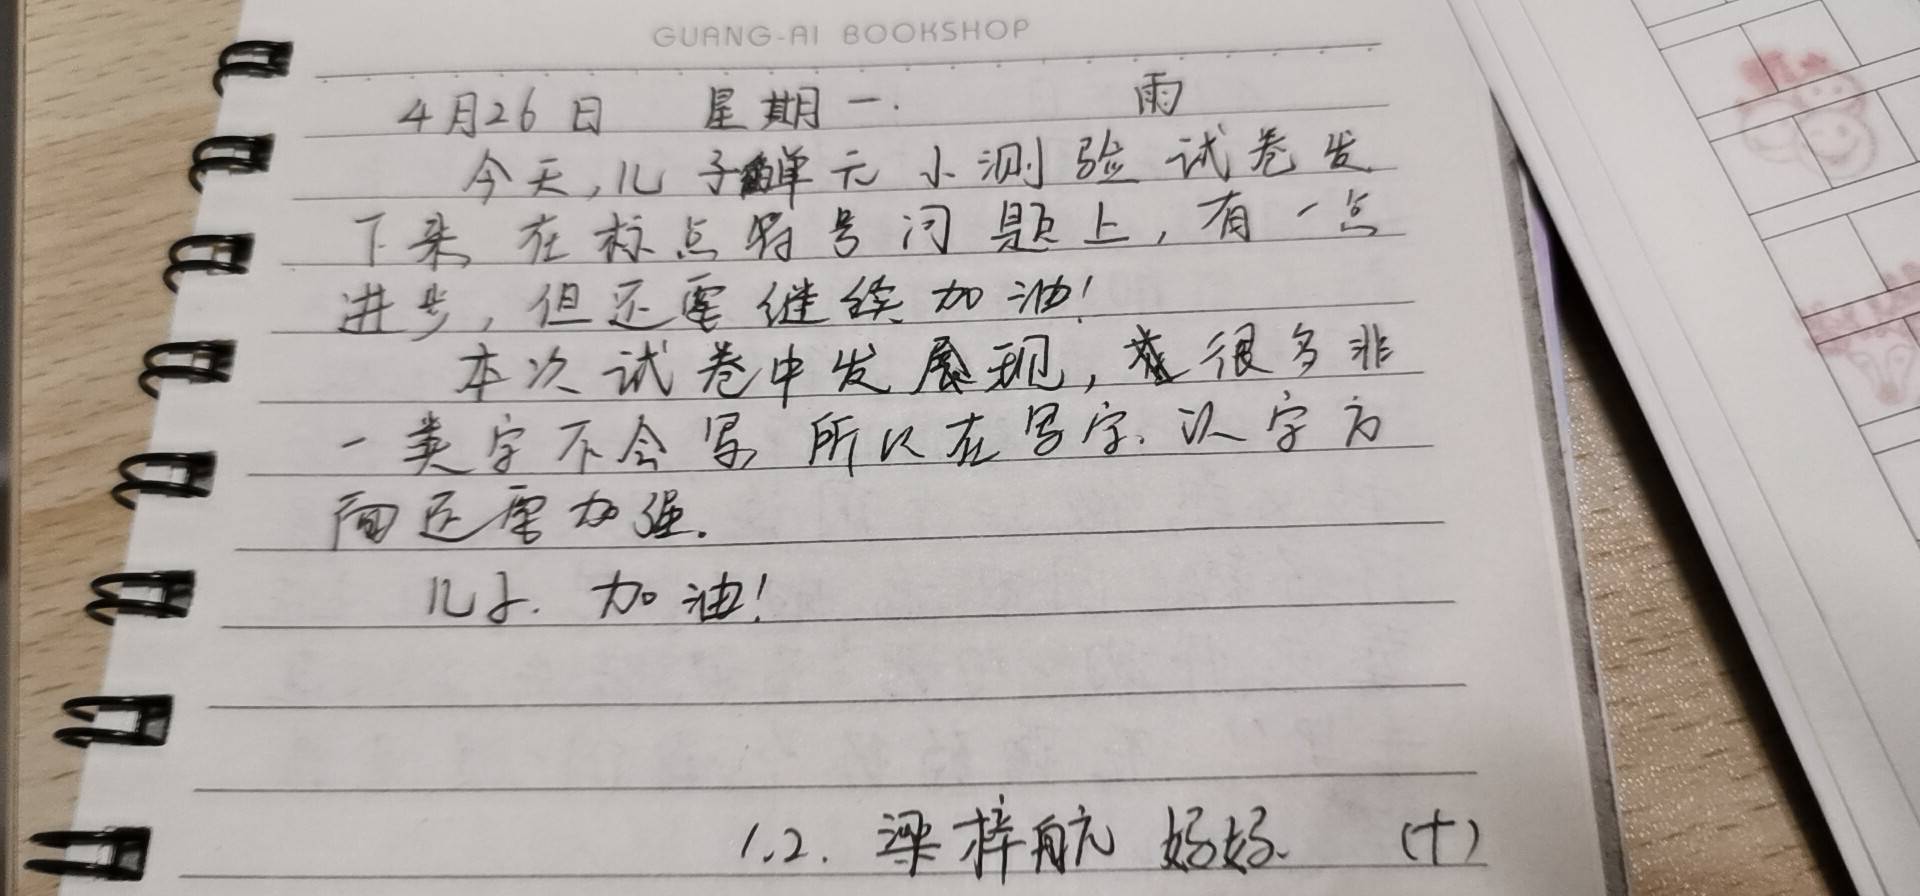 GUANG-AI BOOKSHOP
4月26日 星期一. 雨
今天,儿子单元小测验试卷发
下来,在标点符号问题上,有一点
进步,但还需继续加油!
本次试卷中发现,很多非
一类字不会写,所以在写字、认字方
面还需加强.
儿子.加油!
1.2.梁梓航妈妈. (十)